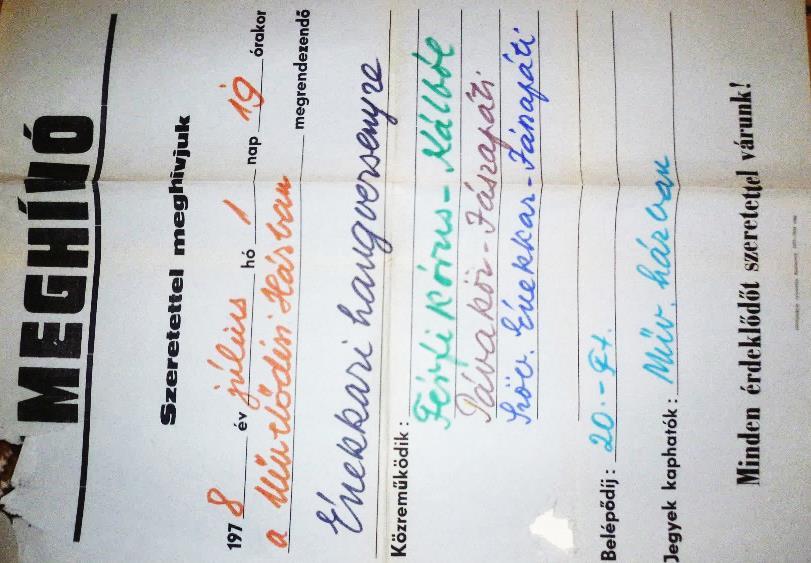 MEGHÍVÓ
Szeretettel meghívjuk
1978 év július hó 1 nap 19 órakor
a Művelődési Házban megrendezendő
Énekkari hangversenyre
Közreműködik: Férfi kórus - Kálból
Pávakör - Jászapáti
Szöv. Énekkar - Jánapáti
Belépődíj: 20.- Ft.
Jegyek kaphatók: Műv. házban
Minden érdeklődőt szeretettel várunk!